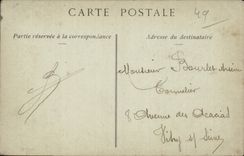 CARTE POSTALE
49
Partie réservée à la correspondance
Adresse du destinataire
Monsieur Bourlet
8 Avenue des Acacias
Vitry s/ Seine